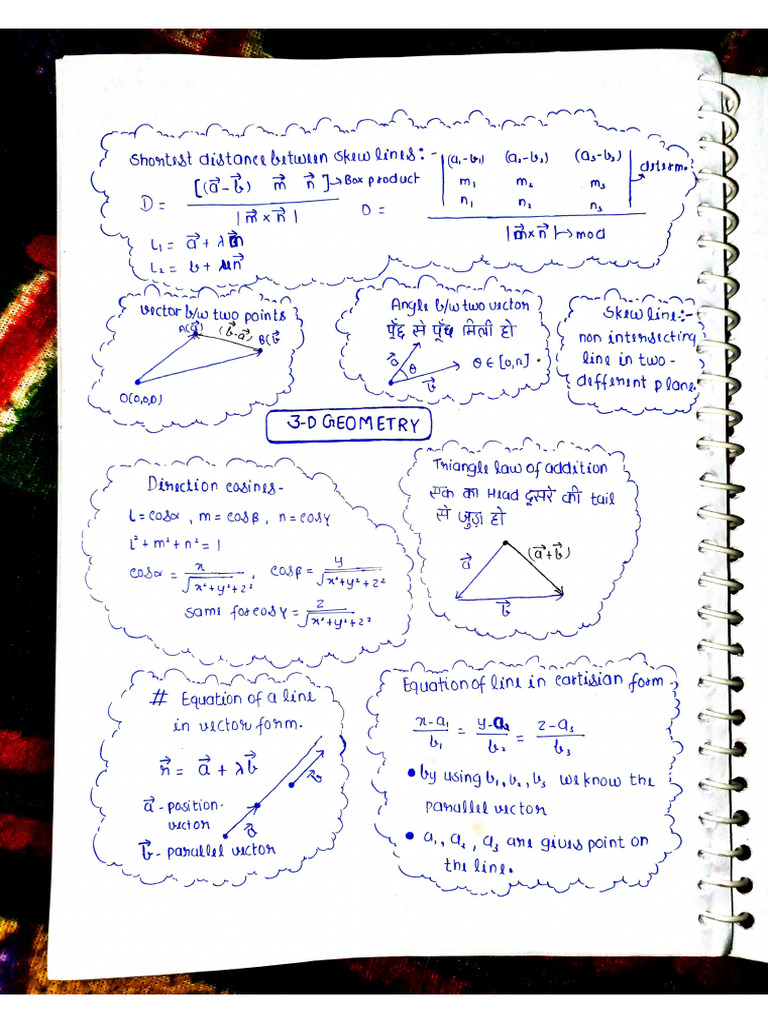 Shortest distance between skew lines:-
D = [(a⃗-b⃗) m⃗ n⃗] → Box product / |m⃗×n⃗|
D = |(a₁-b₁) (a₂-b₂) (a₃-b₃)| → determ.
m₁ m₂ m₃
n₁ n₂ n₃
|m⃗×n⃗| → mod
L₁ = a⃗ + λm⃗
L₂ = b + μn⃗
vector b/w two points
A(a⃗) (b⃗-a⃗) B(b⃗
O(0,0,0)
Angle b/w two vector
पूँछ से पूँछ मिली हो
a⃗ θ b⃗ θ ∈ [0,π].
Skew line:-
non intersecting
line in two
different plane.
3-D GEOMETRY
Direction cosines-
l = cosα , m = cosβ , n = cosγ
l² + m² + n² = 1
cosα = x/√x²+y²+z² , cosβ = y/√x²+y²+z²
same for cosγ = z/√x²+y²+z²
Triangle law of addition
एक का Head दूसरे की tail
से जुड़ा हो
a⃗ (a⃗+b⃗)
b⃗
# Equation of a line
in vector form.
r⃗ = a⃗ + λb⃗
a⃗ - position
vector
b⃗ - parallel vector
Equation of line in cartisian form -
x-a₁/b₁ = y-a₂/b₂ = z-a₃/b₃
• by using b₁, b₂, b₃ we know the
parallel vector
• a₁, a₂, a₃ are gives point on
the line.